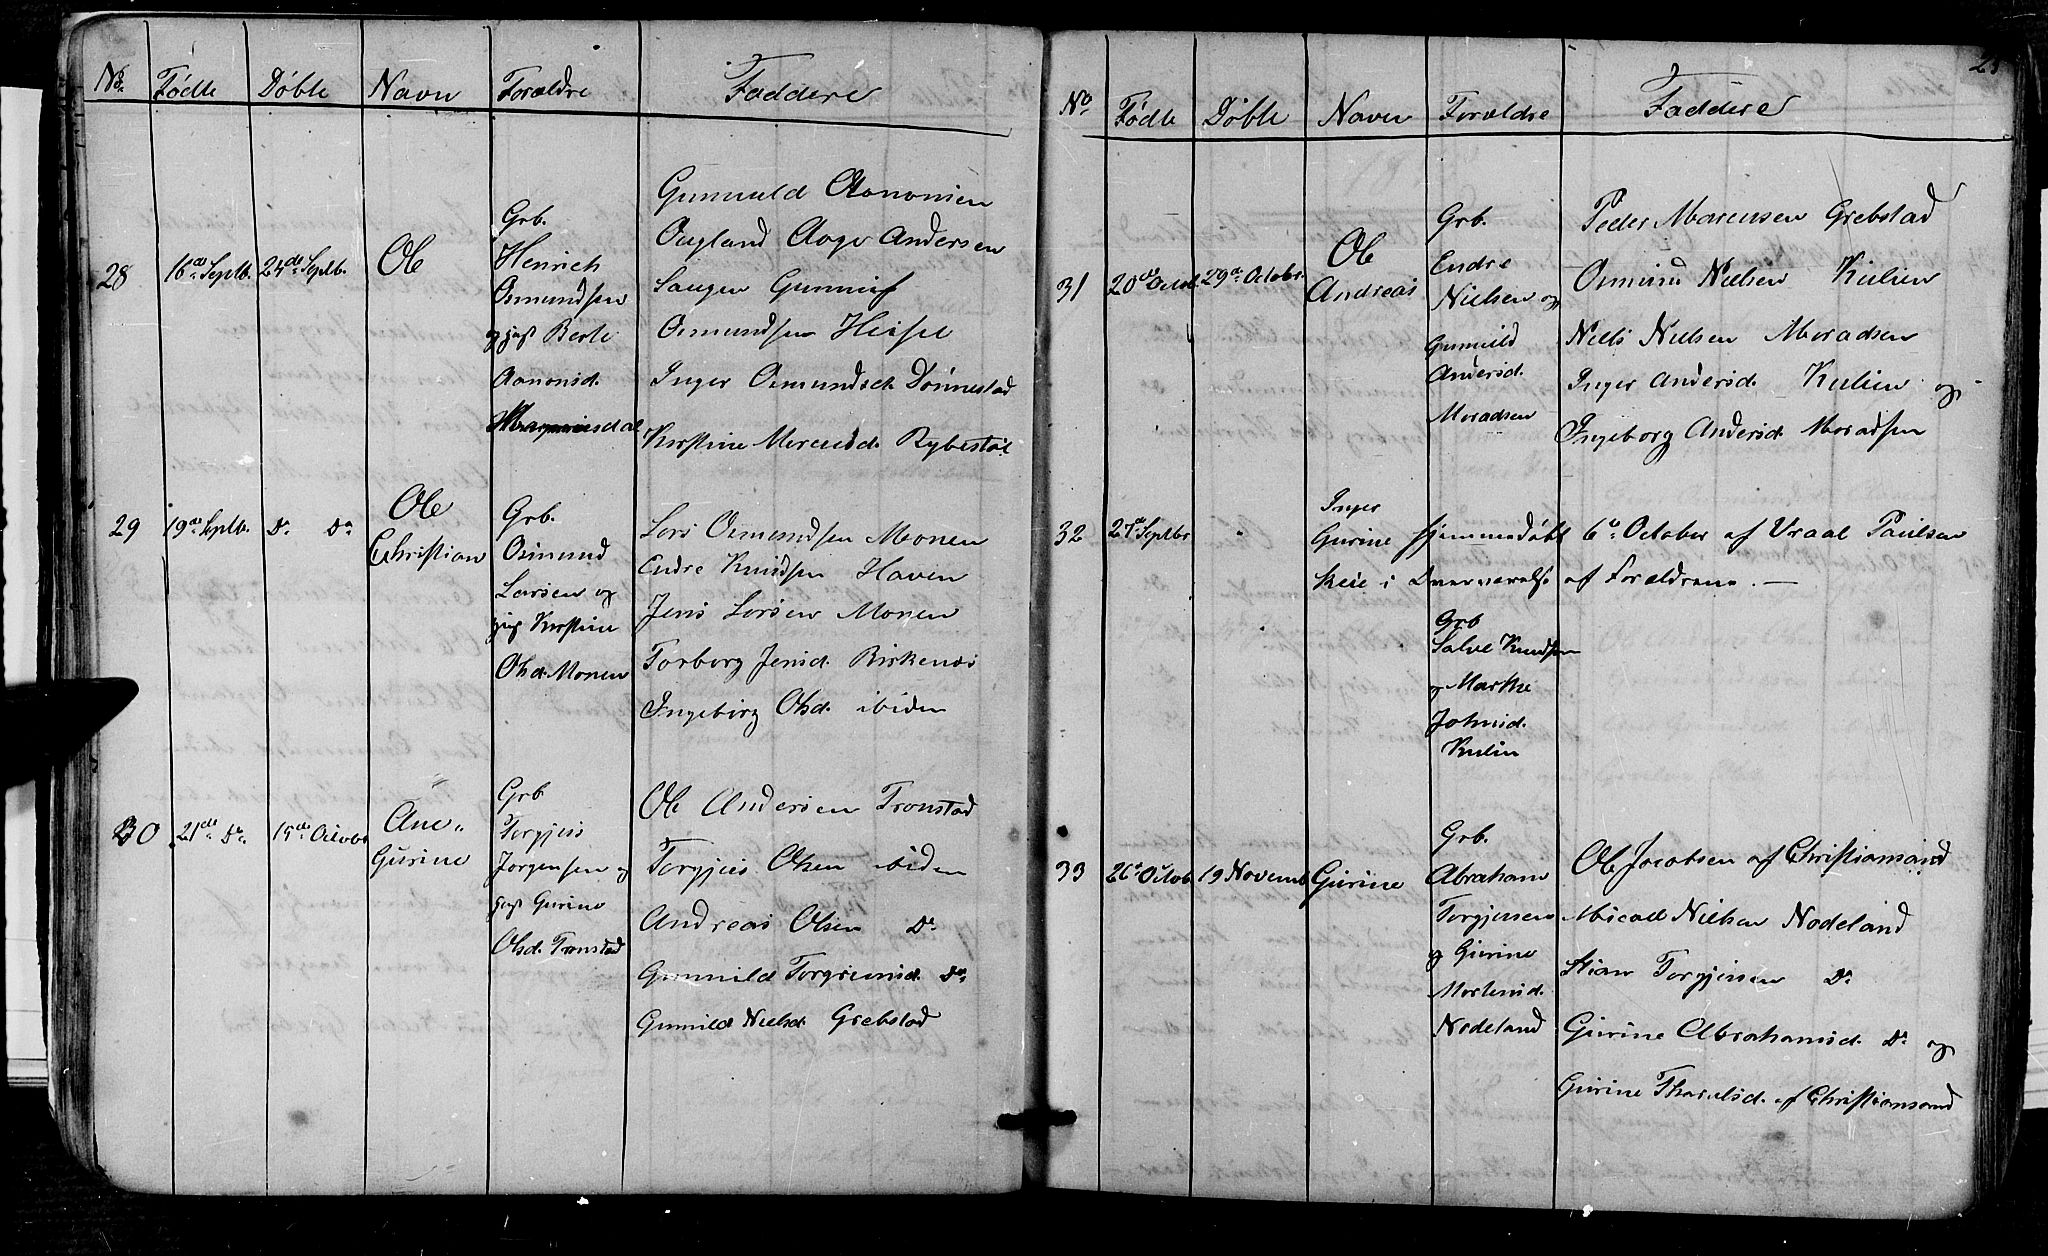 No. Fødte Døbte Navn Forældre Faddere
28 16de Septb. 24de Septb. Ole
Grb.
Henrich
Osmundsen
og hust Berte
Aanonsd.
Gunnuld Aanonsen
Augland Aage Andersen
Osmundsen Heisel
Inger Osmundsd. Dønnestad
Kirstine
29 19de Septb. Do Do Ole
Christian
Grb.
Osmund
Larsen og
hust Kirstine
Olsd. Monen
Lars Osmundsen Monen
Endre Knudsen Haven
Jens Larsen Monen
Torborg Jensd. Birkenes
Ingeborg Olsd. ibiden
30 21de Do. 15de Octobr Ane
Gurine
Grb
Torgjus
Jørgensen og
hust Gurine
Olsd. Tronstad
Ole Andersen Tronstad
Torgjus Olsen ibiden
Andreas Olsen Do
Gunnild Do
Gunild Nielsd. Grebstad
25
No Fødte Døbte Navn Forældre Faddere
31 20de Octob. 29de Octobr. Ole
Andreas
Grb.
Endre
Nielsen og
Gunnild
Andersd.
Moradsen
Peder Grebstad
Osmund Nielsen Kulien
Niels Nielsen Moradsen
Inger Andersd. Kulien og
Ingeborg Andersd. Moradsen
32 27de Septbr Inger
Gurine hjemmedøbt 6te October af Vraal Paulsen
i af Forældrene. —
Grb
Salve Knudsen
og Marthe
Johnsd.
Kulien
33 Octob. 19 Novemb Gurine
Grb.
Abraham
Torgjersen
og Gurine
Mortensd.
Nodeland
Ole Jacobsen af Christiansand
Micall Nielsen Nodeland
Stian Torgjersen Do
Gurine Abrahamsd. Do og
Gurine Tharalsd. af Christiansand